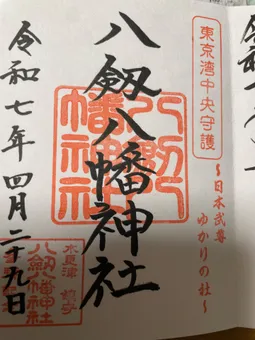 東京湾中央守護
~日本武尊
ゆかりの社~
八剱八幡神社
八剱八幡神社
令和七年四月二十九日
木更津
八剱八幡神社